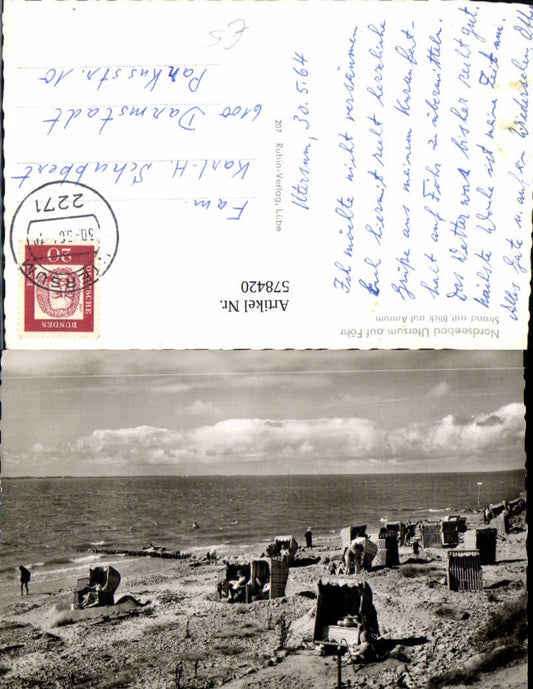 Nordseebad Utersum auf Föhr
Strand mit Blick auf Amrum
Utersum, 30.5.64
Ich möchte nicht versäumen
Euch hiermit recht herzliche
Grüße aus meinem Kuraufent-
halt auf Föhr zu übermitteln.
Das Wetter war bisher recht gut.
nächste Woche ist meine Zeit um.
Alles Gute u. auf ein Wiedersehen
207 Rubin-Verlag, Lübe
Fam.
Karl-H. Schubbert
6100 Darmstadt
Pankusstr. 10
£5
2271
UTERSUM
20
DEUTSCHE
BUNDES
Artikel Nr.
578420